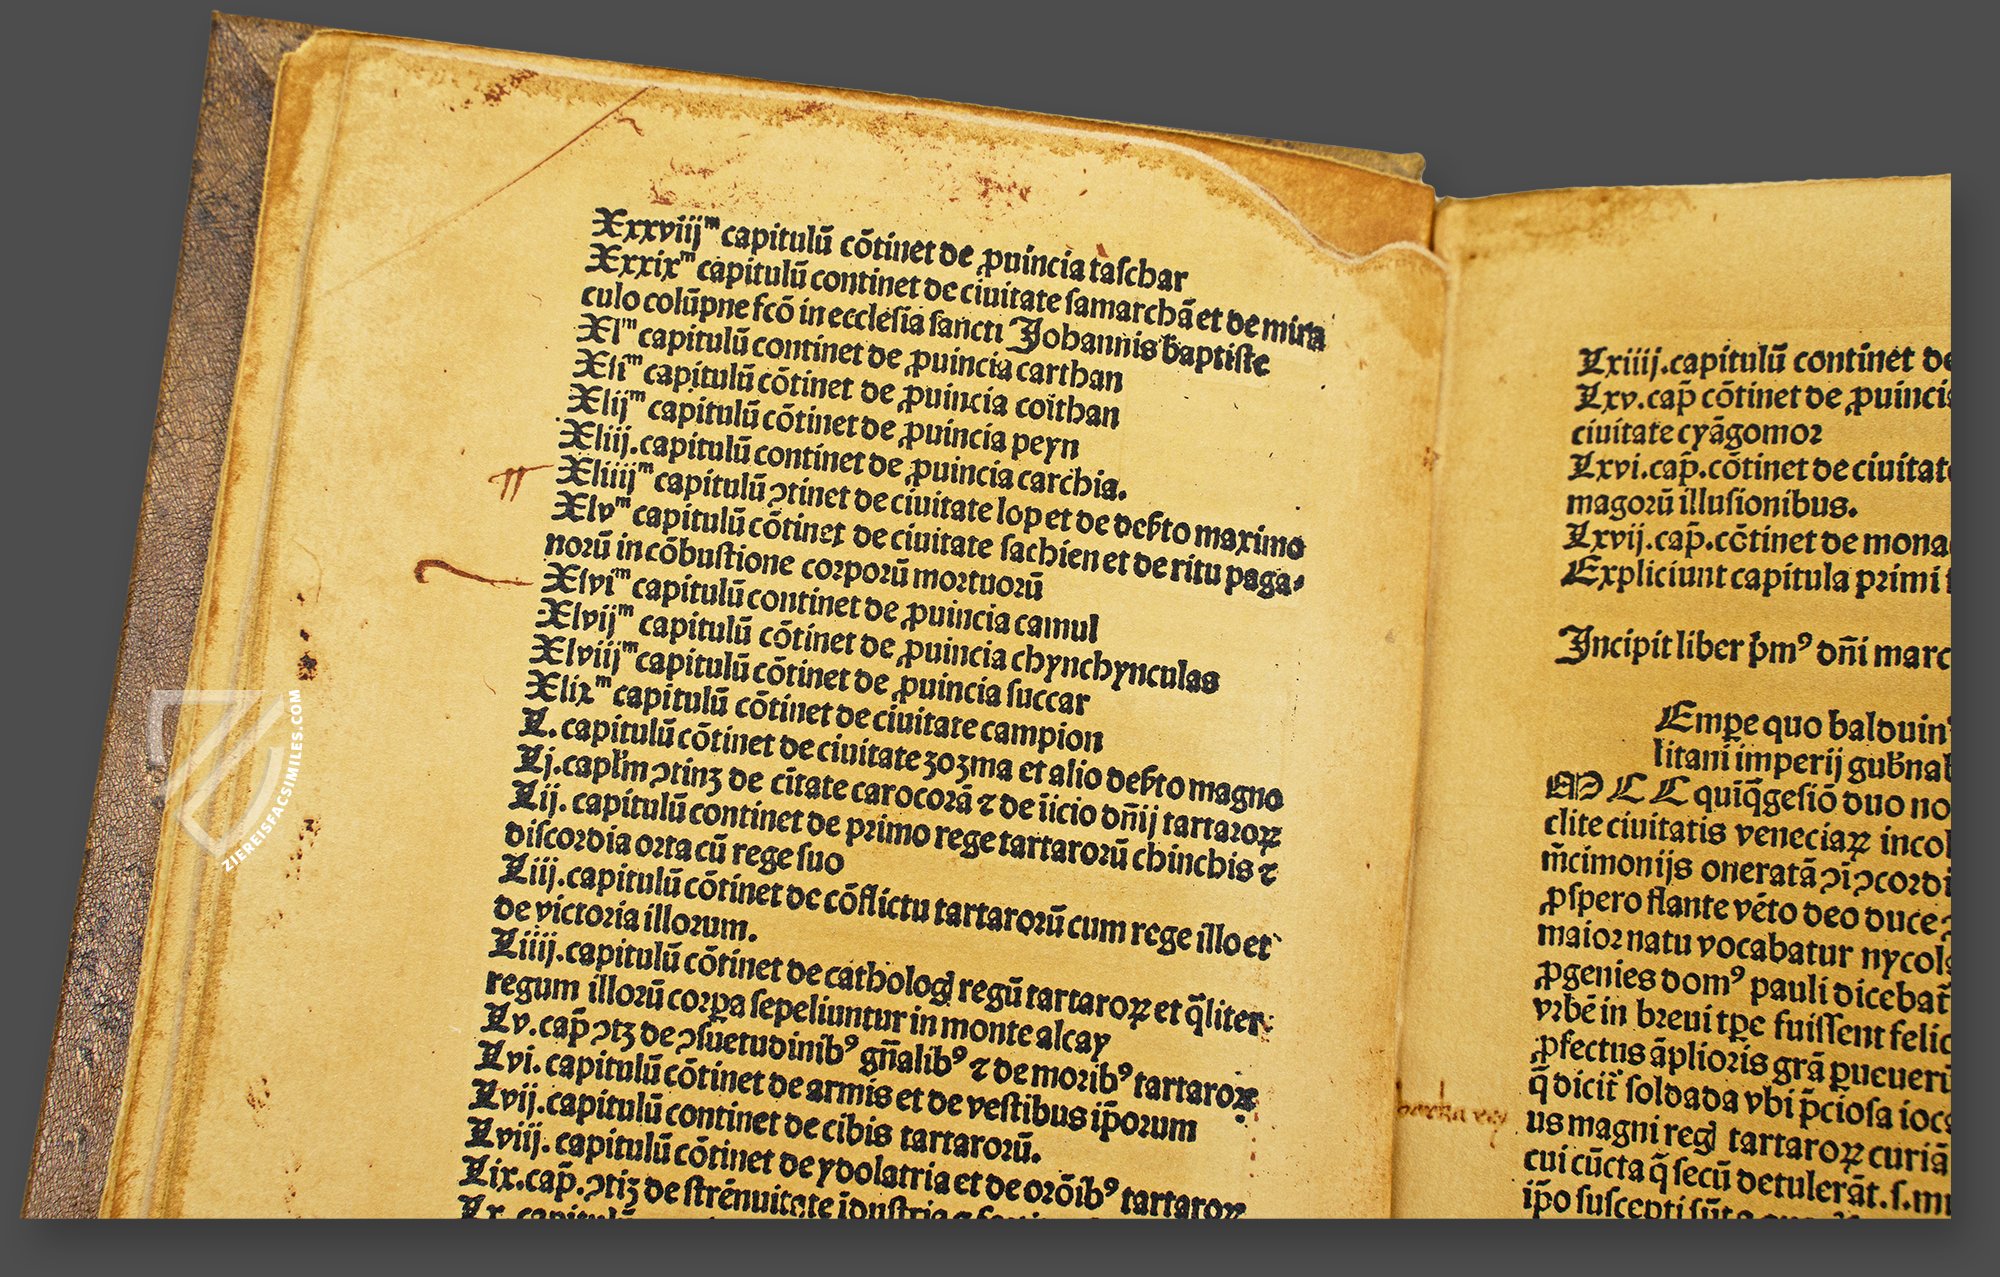 Xxxviijᵐ capitulū cōtinet de ꝓuincia taſchar
Xxxixᵐ capitulū continet de ciuitate ſamarchā et de mira
culo colūpne fcō in eccleſia ſancti Johannis baptiſte
Xlᵐ capitulū continet de ꝓuincia carthan
Xliᵐ capitulū cōtinet de ꝓuincia coithan
Xlijᵐ capitulū cōtinet de ꝓuincia peyn
Xliij. capitulū continet de ꝓuincia carchia.
Xliiijᵐ capitulū ꝯtinet de ciuitate lop et de deẜto maximo
Xlvᵐ capitulū cōtinet de ciuitate ſachien et de ritu paga⸗
norū in cōbuſtione corporū mortuorū
Xlviᵐ capitulū continet de ꝓuincia camul
Xlvijᵐ capitulū cōtinet de ꝓuincia chynchynculas
Xlviijᵐ capitulū cōtinet de ꝓuincia ſuccar
Xlixᵐ capitulū cōtinet de ciuitate campion
L. capitulū cōtinet de ciuitate zozma et alio deẜto magno
Lj. capľm ꝯtinꝫ de cītate carocorā ⁊ de īicio dn̄ij tartaroꝝ
Lij. capitulū continet de primo rege tartarorū chinchis ⁊
diſcordia orta cū rege ſuo
Liij. capitulū cōtinet de cōflictu tartarorū cum rege illo et
de victoria illorum.
Liiij. capitulū cōtinet de cathologꝭ regū tartaroꝝ et q̄liter
regum illorū corꝑa ſepeliuntur in monte alcay
Lv. cap̄ ꝯtꝫ de ꝯſuetudinibꝰ gn̄alibꝰ ⁊ de moribꝰ tartaroꝝ
Lvi. capitulū cōtinet de armis et de veſtibus ip̄orum
Lvij. capitulū continet de cibis tartarorū.
Lviij. capitulū cōtinet de ydolatria et de orōibꝰ tartaroꝝ
Lix. cap̄. ꝯtiꝫ de ſtrēnuitate īduſtria
Lx. capitulū
ZIEREISFACSIMILES.COM
Lxiiij. capitulū continet de
Lxv. cap̄ cōtinet de ꝓuincia
ciuitate cyāgomor
Lxvi. cap̄. cōtinet de ciuitate
magorū illuſionibus.
Lxvij. cap̄. cōtinet de mona
Expliciunt capitula primi
Incipit liber p̄mꝰ dn̄i marc
Empe quo balduin
litani imperij gub̄na
M C C quīq̄geſiō duo no
clite ciuitatis veneciaꝝ incol
m̄cimonijs oneratā ꝯi ꝯcordi
ꝓſpero flante vēto deo duce
maior natu vocabatur nycol
ꝓgenies domꝰ pauli dicebat̄
vrbē in breui tꝑe fuiſſent felic
ꝓfectus āplioris grā ꝑueuerū
q̄ dicit̄ ſoldada vbi p̄cioſa ioc
us magni regꝭ tartaroꝝ curiā
cui cūcta q̄ ſecū detulerāt. ſ. mu
ip̄o ſuſcepti ſūt